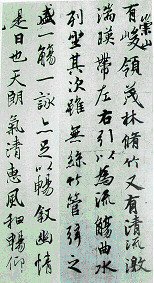 崇山
有峻領茂林脩竹又有清流激
湍暎帶左右引以為流觴曲水
列坐其次雖無絲竹管弦之
盛一觴一詠亦足以暢敘幽情
是日也天朗氣清惠風和暢仰